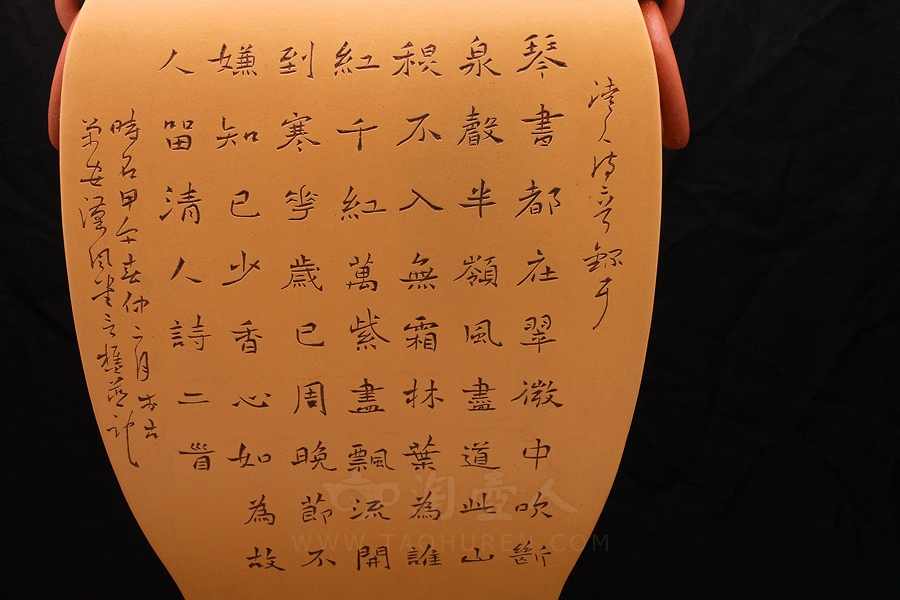 清人詩二首錄于
琴書都在翠微中吹斷
泉聲半嶺風盡道此山
秋不入無霜林葉為誰
紅千紅萬紫盡飄流開
到寒花歲已周晚節不
嫌知己少香心如為故
人留清人詩二首
時在甲午春仲二月
安漢風堂 記
淘壺人
WWW.TAOHUREN.COM